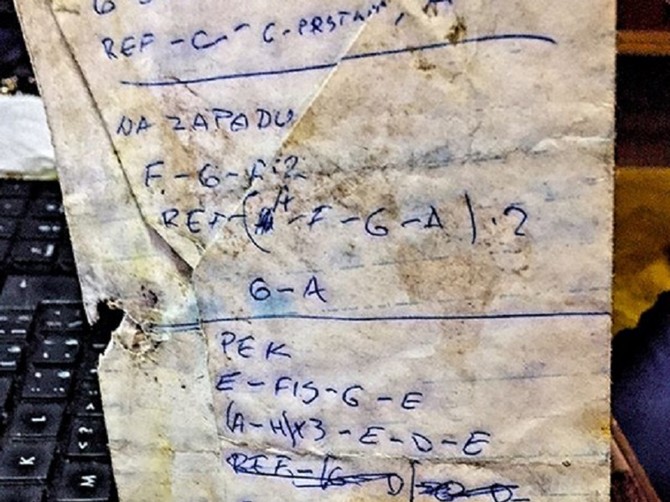 REF - C - C-PRSTAM,
NA ZAPADU
F - G - F:2
REF - ( A - F - G - A ) · 2
G - A
PEK
E - FIS - G - E
(A-H)x3 - E - D - E
REF -
L
M
K